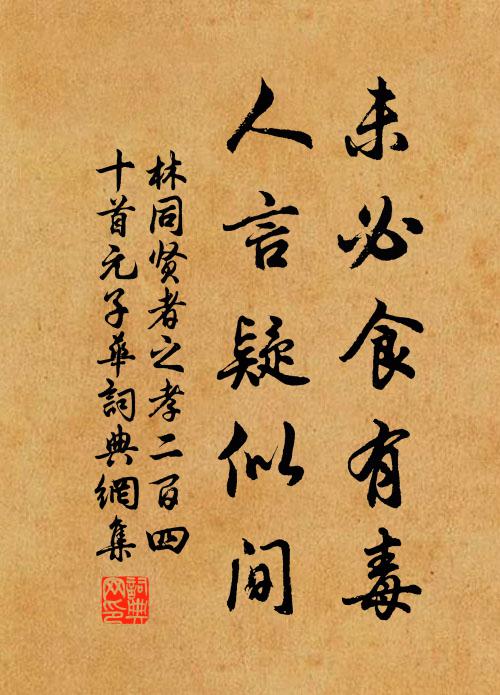 未必食有毒
人言疑似间
林同贤者之孝二百四
十首元子華詞典網集
詞典
网印